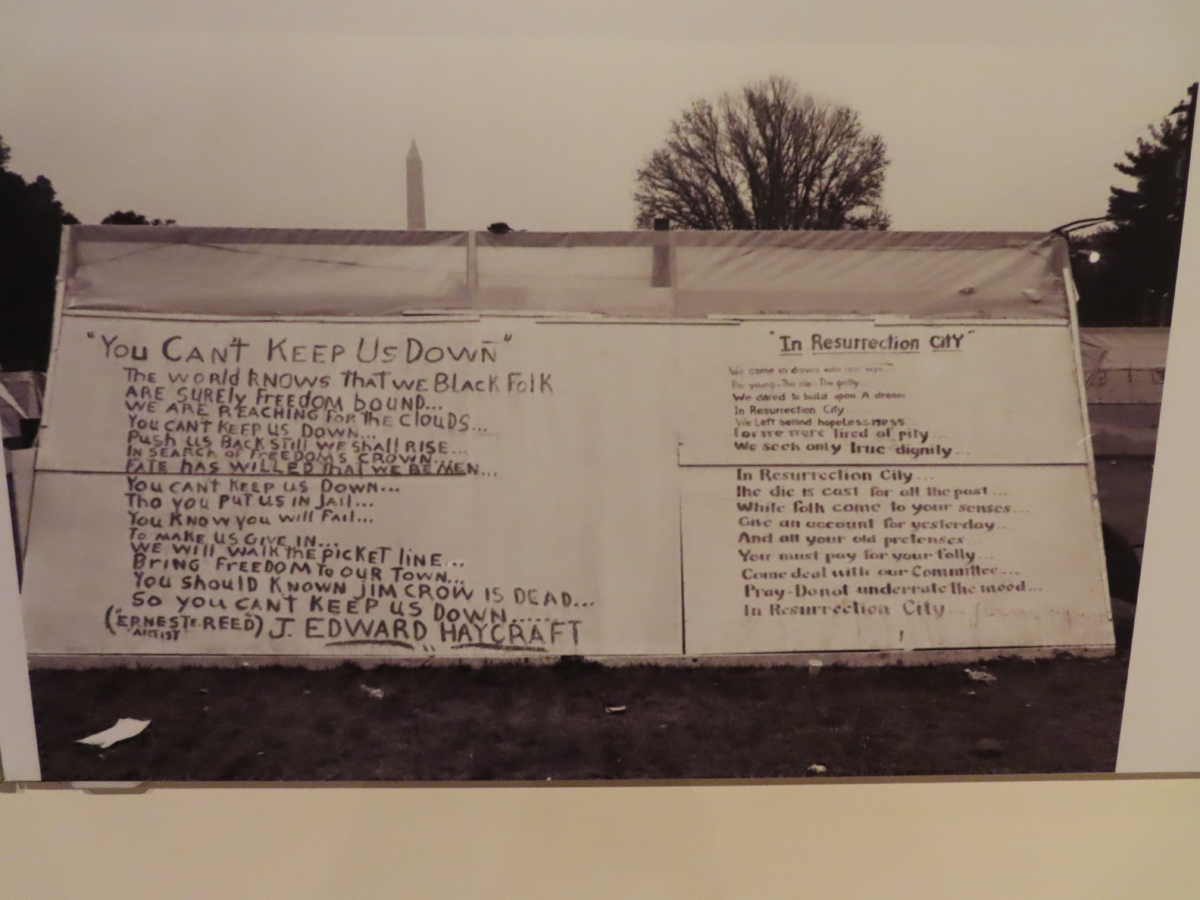 "You Can't Keep Us Down"
The world knows that we Black Folk
are surely freedom bound...
We are reaching for the clouds...
You can't keep us down...
Push us back still we shall rise...
In search of freedom's crown...
Fate has willed that we be men...
You can't keep us down...
Tho you put us in jail...
You know you will fail...
To make us give in...
We will walk the picket line...
Bring freedom to our town...
You should known Jim Crow is dead...
So you can't keep us down......
(Ernest Reed) J. Edward Haycraft
Artist
"In Resurrection City"
We come in droves with
The young - The old - The
We dared to build upon A dream
In Resurrection City
We Left behind hopelessness
For we were tired of pity...
We seek only true dignity...
In Resurrection City...
The die is cast for all the past...
While folk come to your senses...
Give an account for yesterday...
And all your old pretenses...
You must pay for your folly...
Come deal with our Committee...
Pray-Do not underrate the mood...
In Resurrection City...